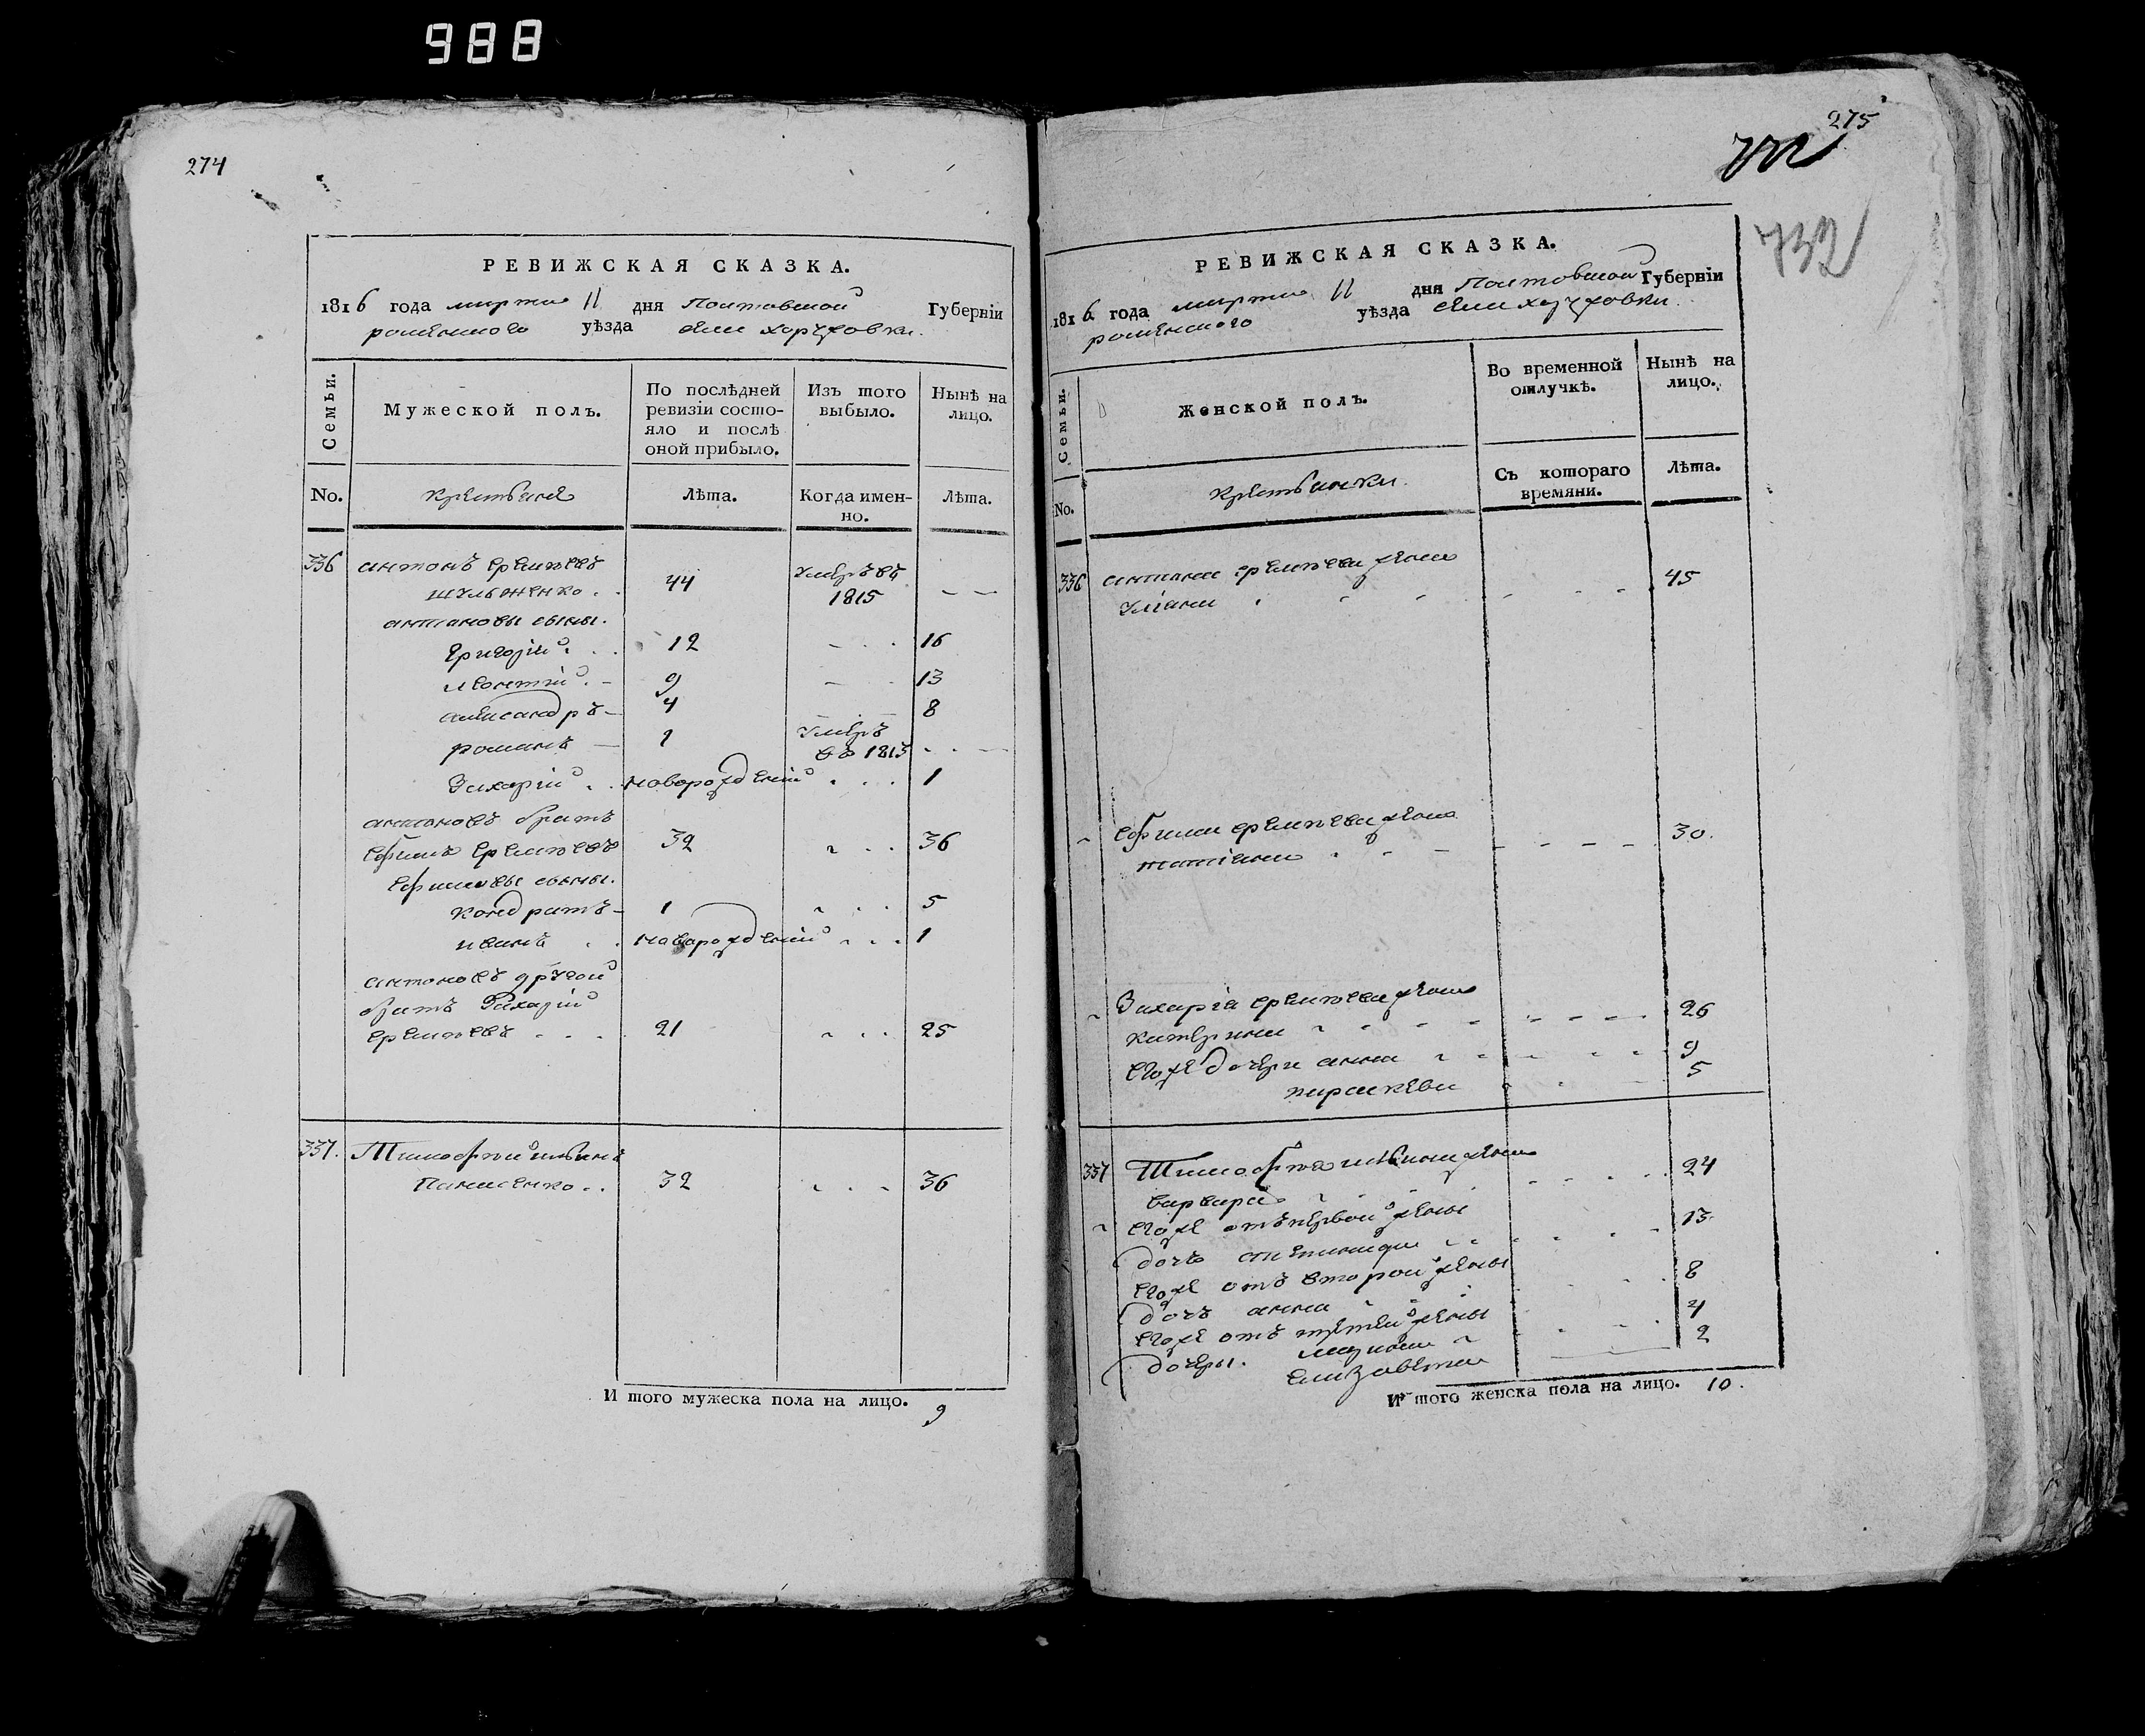 988
274
РЕВИЖСКАЯ СКАЗКА.
1816 года марта 11 дня Полтавской Губерніи
роменского уѣзда села хоружовки.
Семьи.
Мужеской полъ.
По послѣдней ревизіи состо-
яло и послѣ
оной прибыло.
Изъ того
выбыло.
Нынѣ на
лицо.
No.
крестьяне
Лѣта.
Когда имен-
но.
Лѣта.
336 антонъ еремѣевъ умеръ въ
шульженко . . 44 1815 - -
антоновы сыны.
Григорій . . 12 - . . 16
леонтій . - 9 - 13
александръ - 4 - 8
романъ — 1 умеръ
въ 1813 . . —
Захарій . . новорожденій . . . 1
антоновъ братъ
Ефимъ еремѣевъ 32 . . 36
Ефимовы сыны.
кондратъ - 1 . . 5
иванъ . . новорожденій . . . 1
антоновъ другой
братъ Захарій
еремѣевъ - . . . 21 . . 25
337. Тимофѣй
Панченко . . 32 . . - 36
И того мужеска пола на лицо. 9
275
732
РЕВИЖСКАЯ СКАЗКА.
1816 года марта 11 дня Полтавской Губерніи
роменского уѣзда села хоружовки.
Семьи.
Женской полъ.
Во временной
отлучкѣ.
Нынѣ на
лицо.
No.
крестьянки.
Съ котораго
времяни.
Лѣта.
336 антона еремѣева жена
уліана . - - - - - - 45
Ефима еремѣева жена
татіана . - - - - - - 30.
Захарія еремѣева жена
катерина - - - - - - - 26
егоже дочери анна - - - - - 9
параскева - 5
337 Тимофѣя жена
варвара - . . . . 24
егоже отъ первой жены
дочь . . . 13
егоже отъ второй жены
дочь анна . . . 8
егоже отъ третей жены 4
дочеры.
Елизавета 2
И того женска пола на лицо. 10.